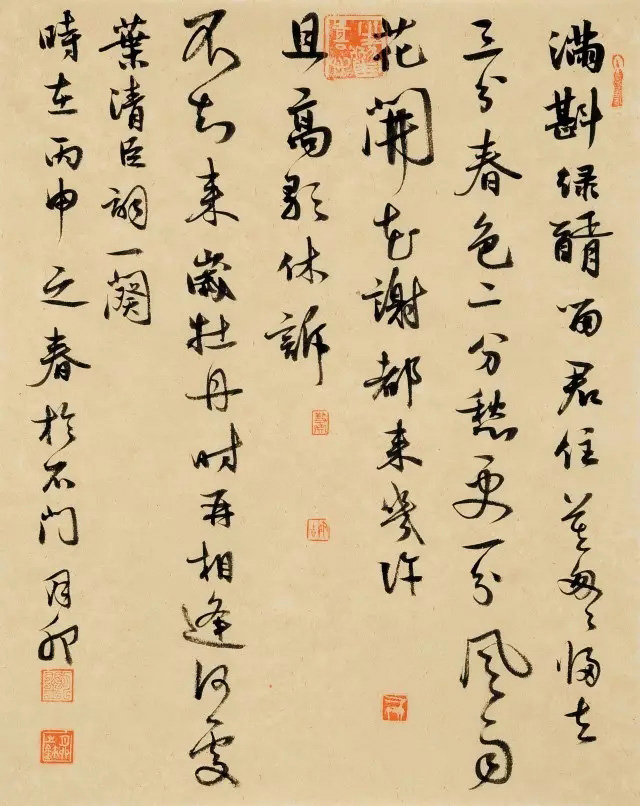 滿斟绿醑留君住莫匆々歸去
三分春色二分愁更一分風雨
花開花謝都来幾許
且高歌休訴
不知来歲牡丹时再相逢何處
葉清臣詞一闋
時在丙申之春於石门月卯